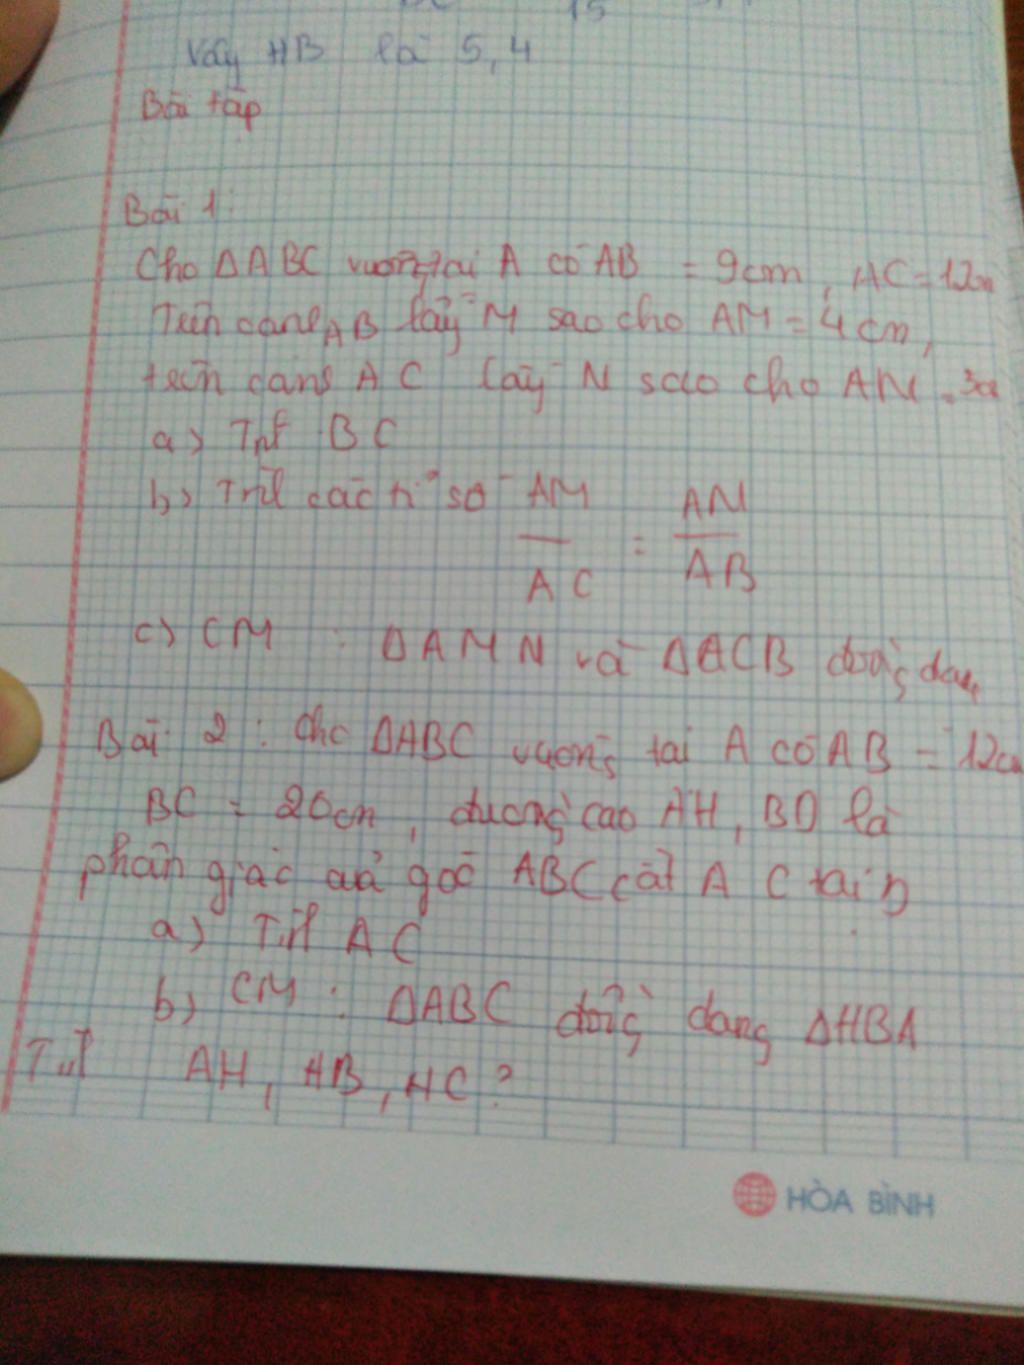 Vậy HB là 5,4
Bài tập
Bài 1:
Cho ΔABC vuông tại A có AB = 9cm, AC = 12cm
Trên cạnh AB lấy M sao cho AM = 4cm,
trên cạnh AC lấy N sao cho AN = 3cm
a) Tính BC
b) Tính các tỉ số AM/AC = AN/AB
c) CM : ΔAMN và ΔACB đồng dạng
Bài 2 : Cho ΔABC vuông tại A có AB = 12cm
BC = 20cm, đường cao AH, BD là
phân giác của góc ABC cắt AC tại D
a) Tính AC
b) CM : ΔABC đồng dạng ΔHBA
Tính AH, HB, HC?
HÒA BÌNH